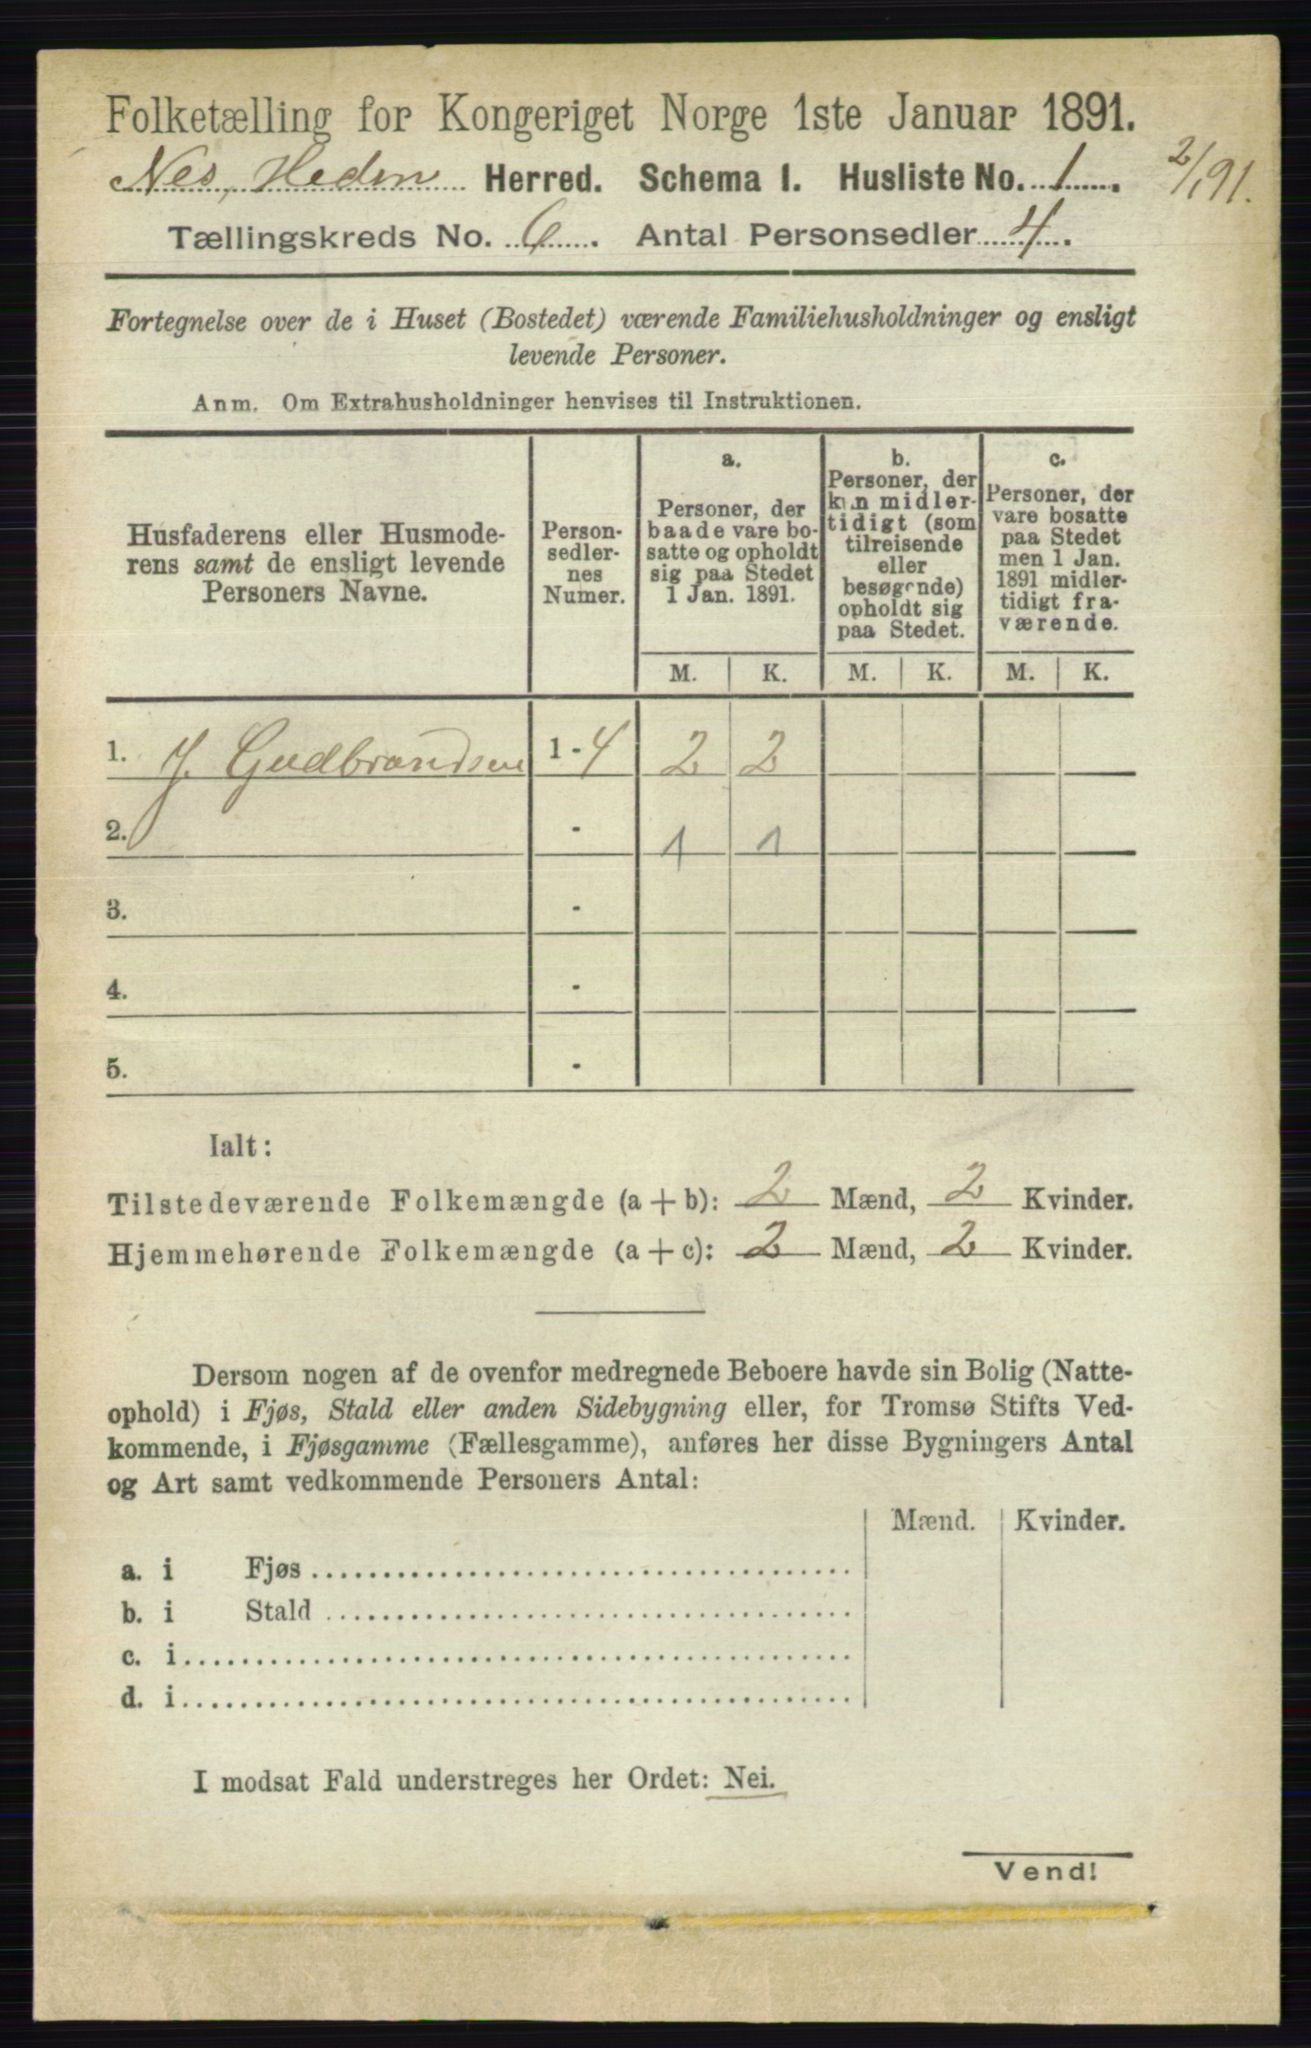 Folketælling for Kongeriget Norge 1ste Januar 1891.
Nes, Hedm Herred. Schema I. Husliste No. 1. 2/1 91.
Tællingskreds No. 6. Antal Personsedler 4.
Fortegnelse over de i Huset (Bostedet) værende Familiehusholdninger og ensligt
levende Personer.
Anm. Om Extrahusholdninger henvises til Instruktionen.
Husfaderens eller Husmode-
rens samt de ensligt levende
Personers Navne.
Person-
sedler-
nes
Numer.
a.
Personer, der
baade vare bo-
satte og opholdt
sig paa Stedet
1 Jan. 1891.
b.
Personer, der
kun midler-
tidigt (som
tilreisende
eller
besøgende)
opholdt sig
paa Stedet.
c.
Personer, der
vare bosatte
paa Stedet
men 1 Jan.
1891 midler-
tidigt fra-
værende.
M. K. M. K. M. K.
1. J. Gudbrandsen 1 - 4 2 2
2. - 1 1
3. -
4. -
5. -
Ialt:
Tilstedeværende Folkemængde (a + b): 2 Mænd, 2 Kvinder.
Hjemmehørende Folkemængde (a + c): 2 Mænd, 2 Kvinder.
Dersom nogen af de ovenfor medregnede Beboere havde sin Bolig (Natte-
ophold) i Fjøs, Stald eller anden Sidebygning eller, for Tromsø Stifts Ved-
kommende, i Fjøsgamme (Fællesgamme), anføres her disse Bygningers Antal
og Art samt vedkommende Personers Antal:
Mænd. Kvinder.
a. i Fjøs
b. i Stald
c. i
d. i
I modsat Fald understreges her Ordet: Nei.
Vend!